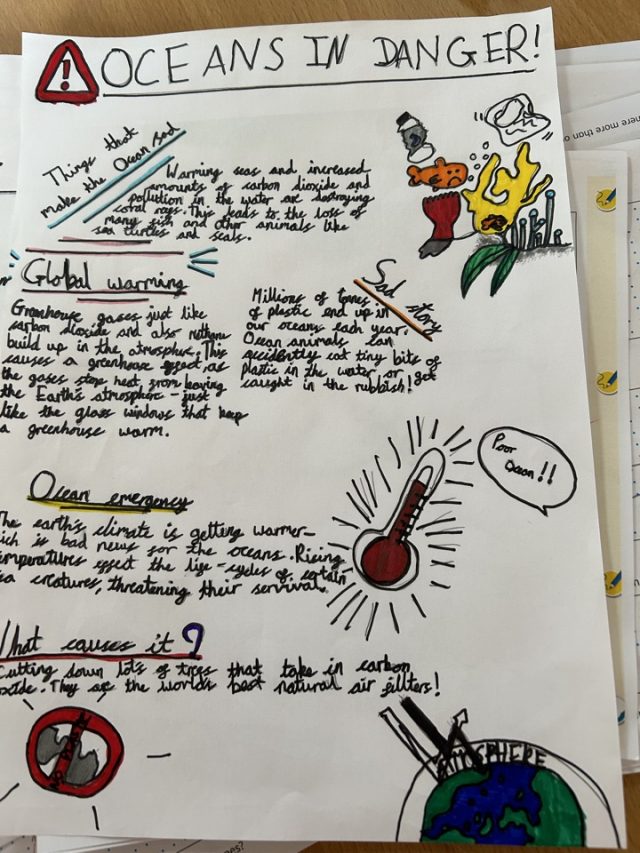 OCEANS IN DANGER!
Things that
make the Ocean sad
Warming seas and increased
amounts of carbon dioxide and
pollution in the water are destroying
coral rays. This leads to the loss of
many fish and other animals like
sea turtles and seals.
Global warming
Greenhouse gases just like
carbon dioxide and also methane
build up in the atmosphere. This
causes a greenhouse effect, as
the gases stop heat from leaving
the Earth's atmosphere - just
like the glass windows that keep
a greenhouse warm.
Sad story
Millions of tonnes
of plastic end up in
our oceans each year.
Ocean animals can
accidently eat tiny bits of
plastic in the water or get
caught in the rubbish!
Poor
Ocean!!
Ocean emergency
The earth's climate is getting warmer-
ich is bad news for the oceans. Rising
temperatures effect the life-cycles of certain
ea creatures, threatening their servival.
What causes it?
Cutting down lots of trees that take in carbon
oxide. They are the worlds best natural air filters!
ATMOSPHERE
here more than o